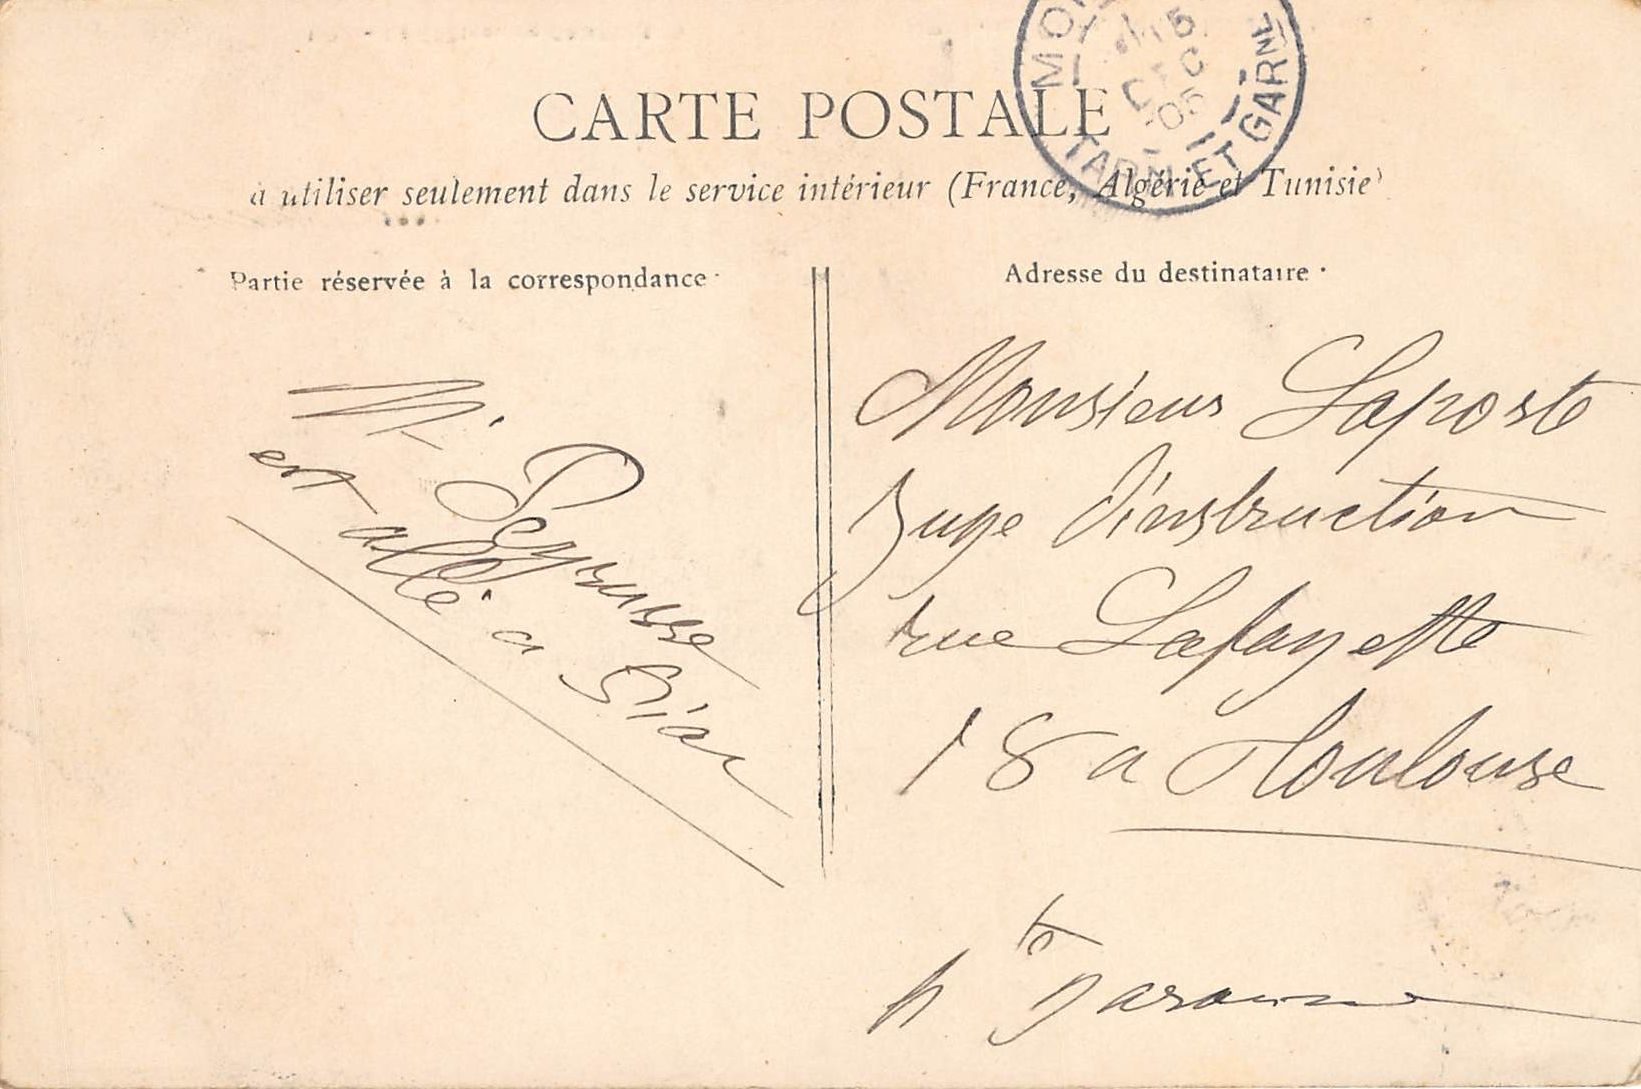 CARTE POSTALE
à utiliser seulement dans le service intérieur (France, Algérie et Tunisie)
TARN ET GARNE
15
DEC
05
Partie réservée à la correspondance
Mr Peyrusse
est allé a
Adresse du destinataire
Monsieur Laposte
Juge d'instruction
rue Lafayette
18 a Toulouse
hte Garonne